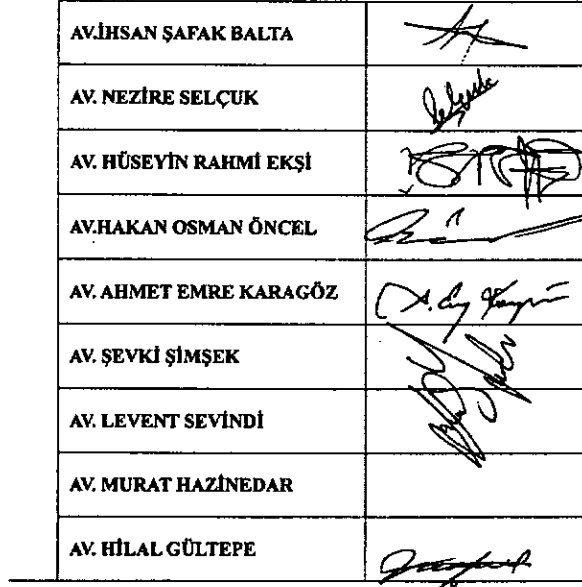 AV.İHSAN ŞAFAK BALTA
AV. NEZİRE SELÇUK
AV. HÜSEYİN RAHMİ EKŞİ
AV.HAKAN OSMAN ÖNCEL
AV. AHMET EMRE KARAGÖZ
AV. ŞEVKİ ŞİMŞEK
AV. LEVENT SEVİNDİ
AV. MURAT HAZİNEDAR
AV. HİLAL GÜLTEPE